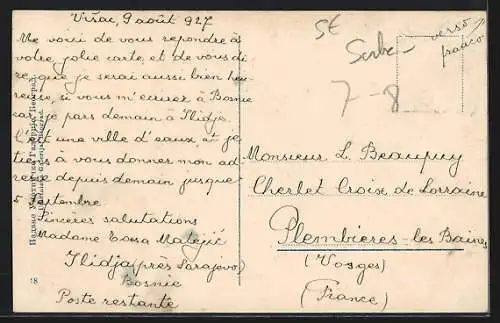 Vršac, 9 août 927
Me voici de vous repondre à
votre jolie carte, et de vous di
re, que je serai aussi bien heu-
reuse, si vous m'ecrivez à Bosnie
car je pars demain à Ilidje.
C'est une ville d'eaux et je
tiens à vous donner mon ad
resse depuis demain jusque
5 septembre.
Sincères salutations
Madame Matejić
Ilidja (près Sarajevo)
Bosnie
Poste restante
18
SE
Serbe
7-8
verso
franco
Monsieur L. Beaupuy
Cherlet Croix de Lorraine
Plembières-les Bains
(Vosges)
(France)